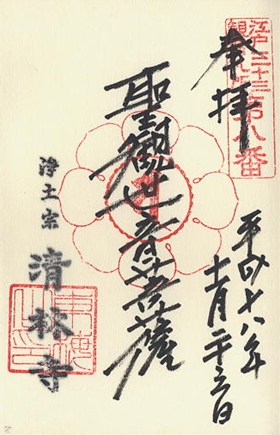 江戸三十三
観音札所第八番
奉拝
平成十八年
十一月二十三日
聖観世音菩薩
浄土宗
清林寺